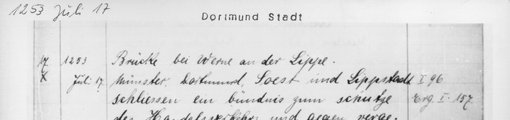 1253 Juli 17
Dortmund Stadt
1253 Brücke bei Werne an der Lippe.
Juli 17. Münster, Dortmund, Soest und Lippstadt I 96
schliessen ein bündnis zum schutze Erg. I. 157
des Handelsverkehrs und gegen verge-